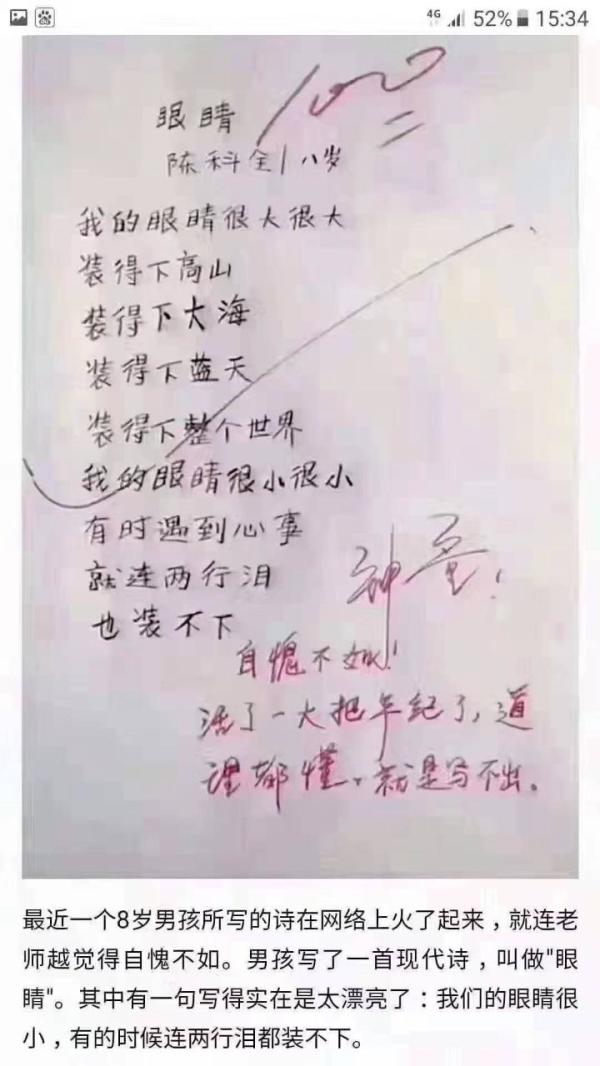 4G 52% 15:34
100
眼睛
陈科全 八岁
我的眼睛很大很大
装得下高山
装得下大海
装得下蓝天
装得下整个世界
我的眼睛很小很小
有时遇到心事
就连两行泪
也装不下
神童!
自愧不如!
活了一大把年纪了,道
理都懂。就是写不出。
最近一个8岁男孩所写的诗在网络上火了起来，就连老
师越觉得自愧不如。男孩写了一首现代诗，叫做"眼
睛"。其中有一句写得实在是太漂亮了：我们的眼睛很
小，有的时候连两行泪都装不下。